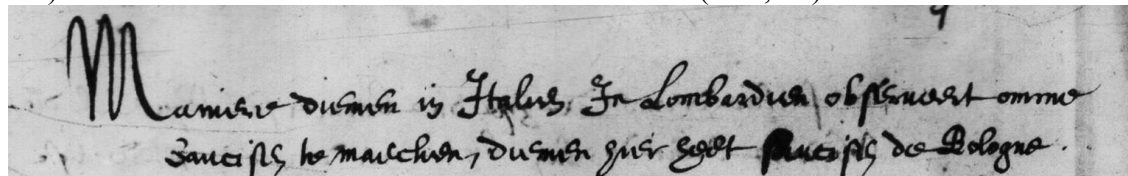 Maniere diemen in Italien In Lombardien observeert omme
Saucissen te maecken, diemen hier heet saucissen de Bologne.